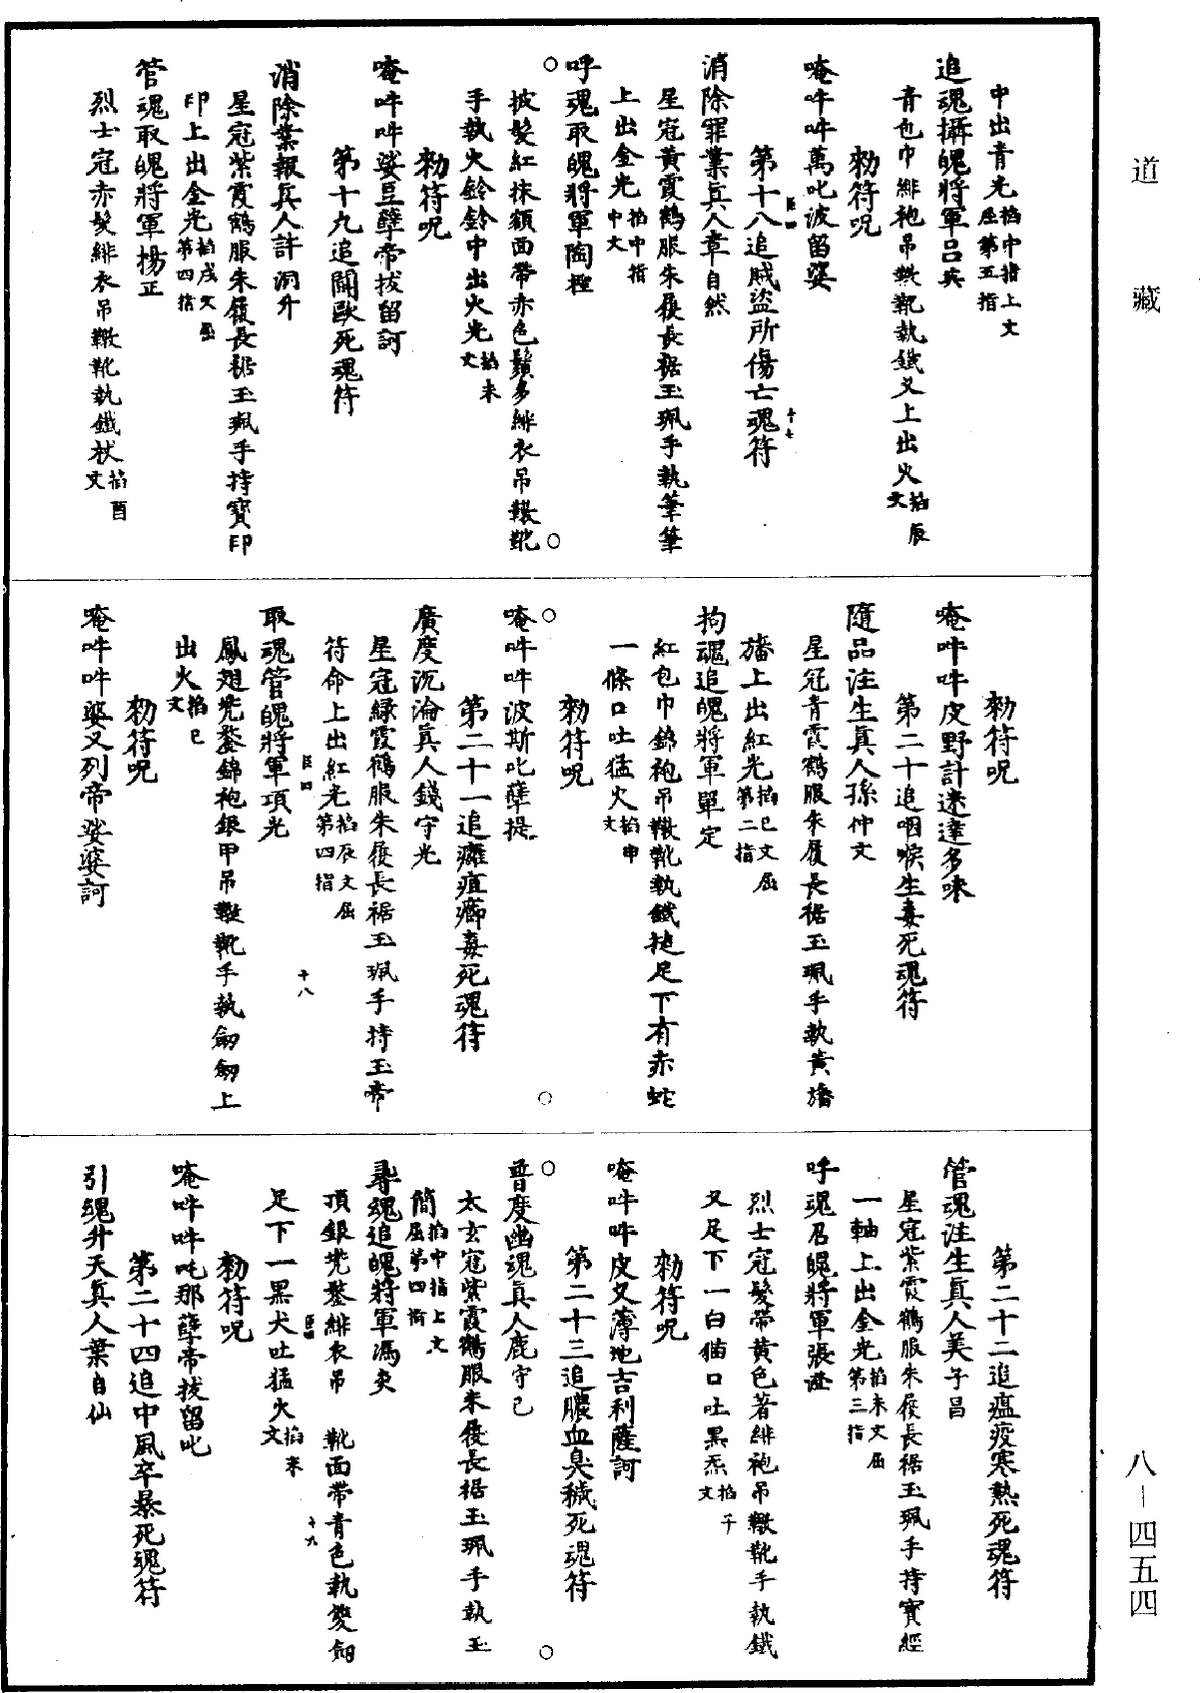 道藏
中出青光掐中指上文屈第五指
追魂攝魄將軍呂英
青包巾緋袍吊䩫靴執鐵叉上出火掐辰文
勑符呪
唵吽吽萬叱波留娑
第十八追賊盜所傷亡魂符
十七
消除罪業真人章自然
星冠黃霞鶴服朱履長裾玉珮手執筆筆
上出金光掐中指中文
呼魂取魄將軍陶
披髮紅抹額面帶赤色鬚多緋衣吊䩫靴
手執火鈴鈴中出火光掐未文
勑符呪
唵吽吽娑豆孽帝拔留訶
第十九追鬬歐死魂符
消除業報真人許洞升
星冠紫霞鶴服朱履長裾玉珮手持寶印
印上出金光掐戌文屈第四指
管魂取魄將軍楊正
烈士冠赤髮緋衣吊䩫靴執鐵杖掐酉文
勑符呪
唵吽吽皮野計迷達多唻
第二十追咽喉生毒死魂符
隨品注生真人孫仲文
星冠青霞鶴服朱履長裾玉珮手執黃旛
旛上出紅光掐巳文屈第二指
拘魂追魄將軍單定
紅包巾錦袍吊䩫靴執鐵搥足下有赤蛇
一條口吐猛火掐申文
勑符呪
唵吽吽波斯叱孽提
第二十一追癰疽癤毒死魂符
廣度沉淪真人錢守光
星冠綠霞鶴服朱履長裾玉珮手持玉帝
符命上出紅光掐辰文屈第四指
十八
取魂管魄將軍項光
鳳翅兠鍪錦袍銀甲吊䩫靴手執劒劒上
出火掐巳文
勑符呪
唵吽吽婆又列帝娑婆訶
第二十二追瘟疫寒熱死魂符
管魂注生真人姜子昌
星冠紫霞鶴服朱履長裾玉珮手持寶經
一軸上出金光掐未文屈第三指
呼魂召魄將軍張澄
烈士冠髮帶黃色著緋袍吊䩫靴手執鐵
叉足下一白猫口吐黑炁掐午文
勑符呪
唵吽吽皮叉薄地吉利薩訶
第二十三追膿血臭穢死魂符
普度幽魂真人鹿守己
太玄冠紫霞鶴服朱履長裾玉珮手執玉
簡掐中指上文屈第四指
尋魂追魄將軍馮奕
頂銀兠鍪緋衣吊 靴面帶青色執雙劒
十九
足下一黑犬吐猛火掐未文
勑符呪
唵吽吽吒那孽帝拔留叱
第二十四追中風卒暴死魂符
引魂升天真人葉自仙
八—四五四